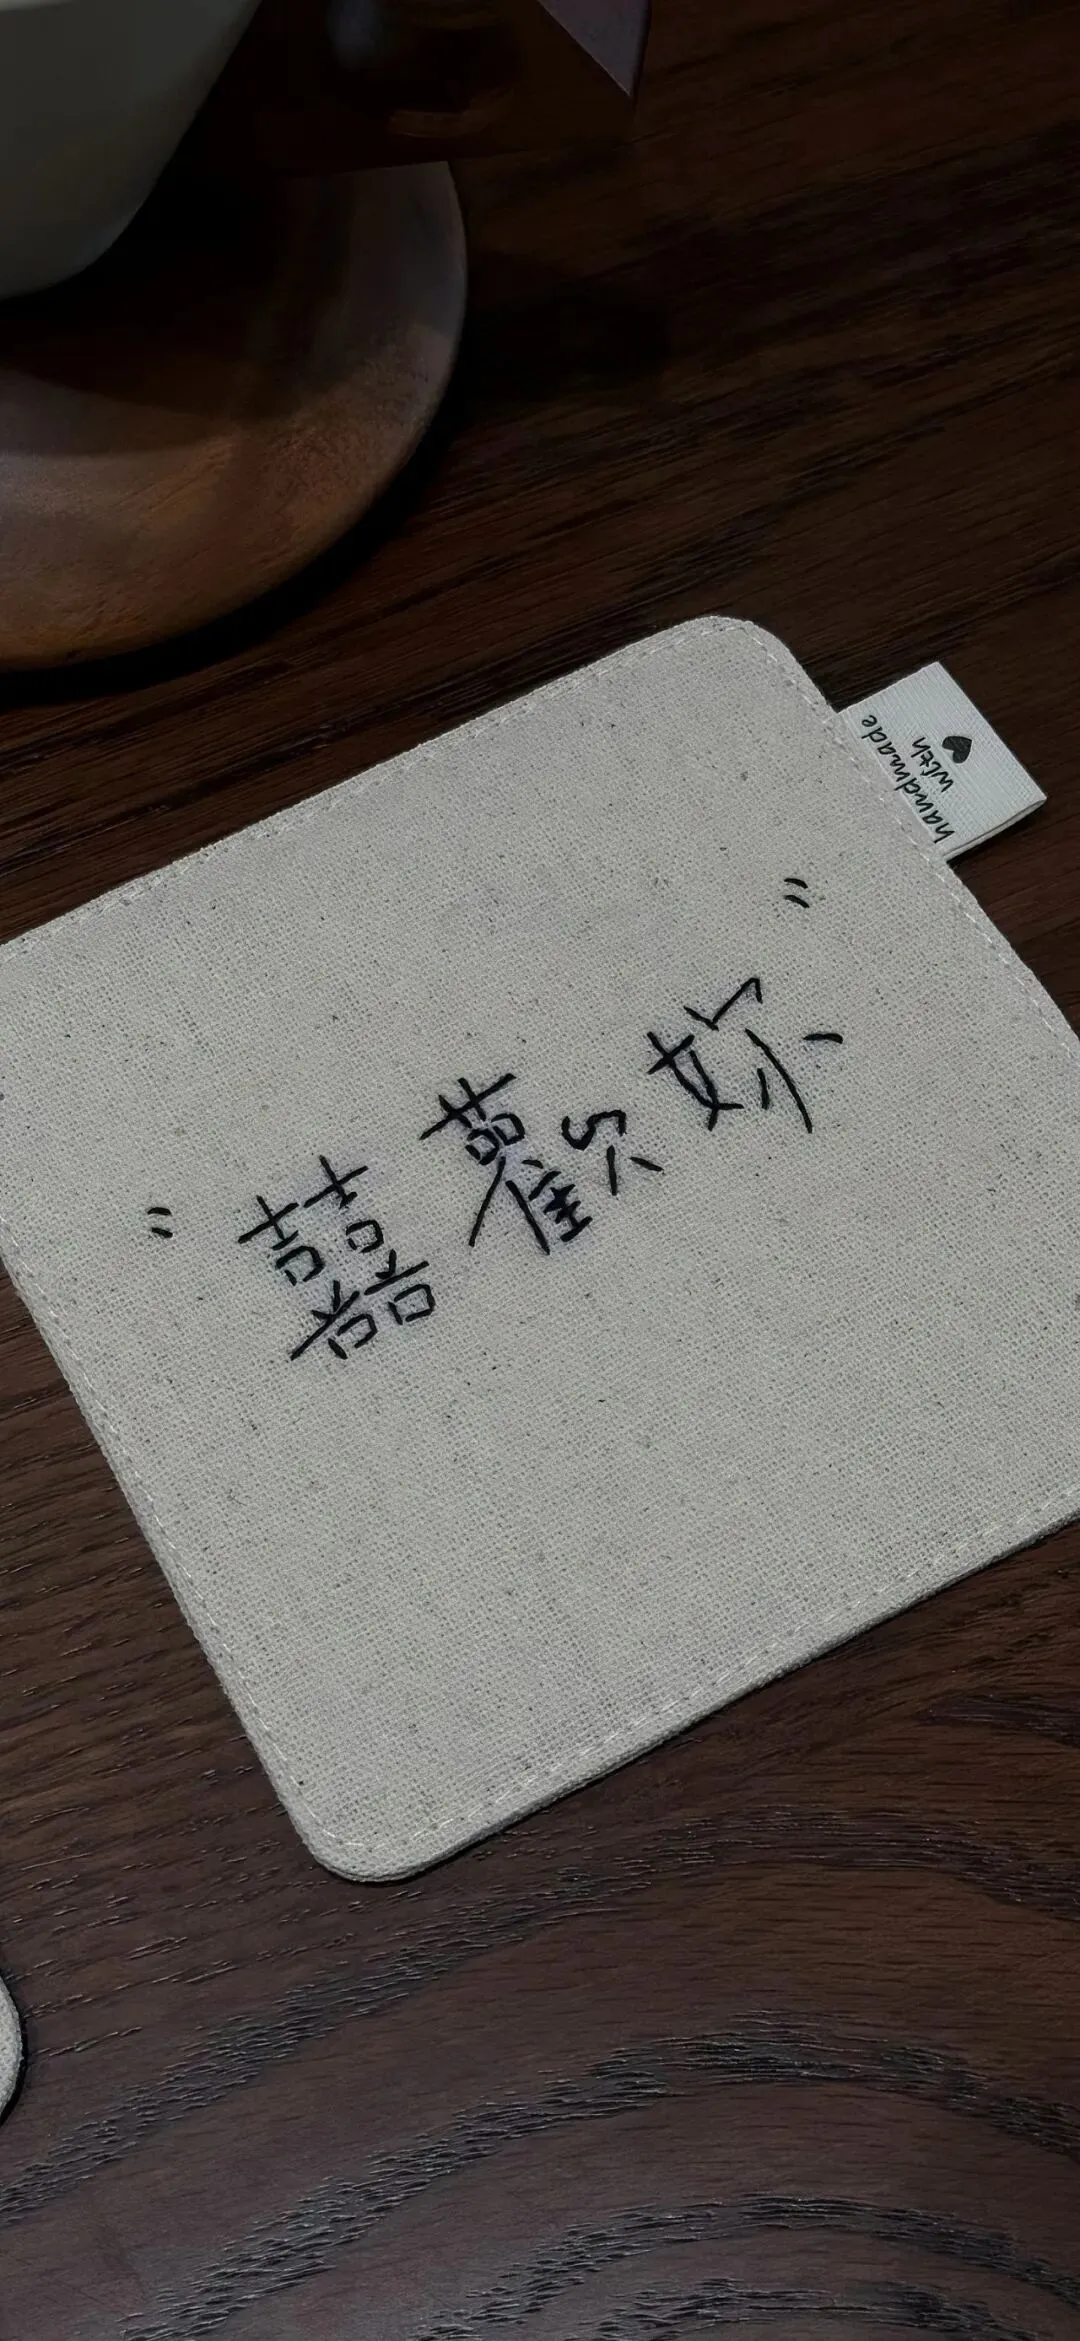 "囍歡妳"
handmade
with ♥